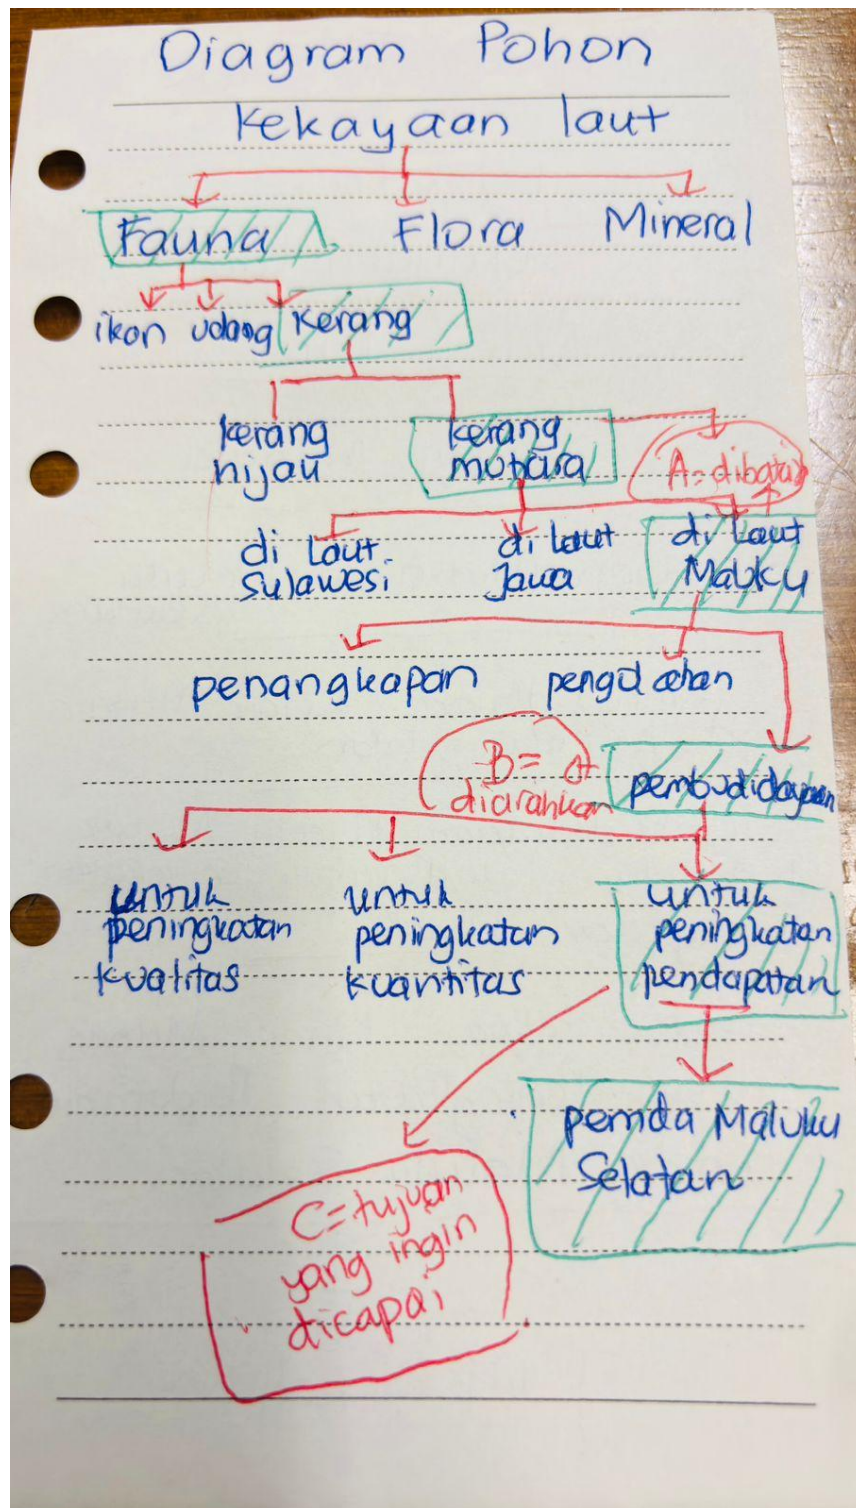 Diagram Pohon
Kekayaan laut
Fauna Flora Mineral
ikan udang kerang
kerang hijau
kerang mutiara
A = dibatasi
di Laut Sulawesi
di Laut Jawa
di Laut Maluku
penangkapan pengolahan
B =
diarahkan
pembudidayaan
untuk
peningkatan
kualitas
untuk
peningkatan
kuantitas
untuk
peningkatan
pendapatan
pemda Maluku
Selatan
C = tujuan
yang ingin
dicapai